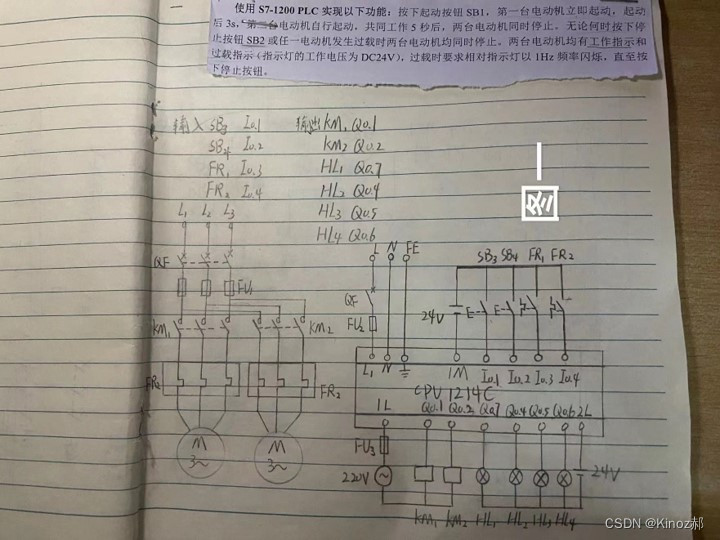 使用 S7-1200 PLC 实现以下功能：按下起动按钮 SB1，第一台电动机立即起动，起动
后 3s，第二台电动机自行起动，共同工作 5 秒后，两台电动机同时停止。无论何时按下停
止按钮 SB2 或任一电动机发生过载时两台电动机均同时停止。两台电动机均有工作指示和
过载指示（指示灯的工作电压为 DC24V），过载时要求相对指示灯以 1Hz 频率闪烁，直至按
下停止按钮。
一
输入 SB3 I0.1 输出 KM1 Q0.1
SB4 I0.2 KM2 Q0.2
FR1 I0.3 HL1 Q0.7
FR2 I0.4 HL2 Q0.4
HL3 Q0.5
HL4 Q0.6
L1 L2 L3
QF
FU1
KM1 KM2
FR2 FR2
M M
3~ 3~
L N FE
QF
FU2
SB3 SB4 FR1 FR2
24V E E
L1 N 1M I0.1 I0.2 I0.3 I0.4
CPU 1214C
1L Q0.1 Q0.2 Q0.7 Q0.4 Q0.5 Q0.6 2L
FU3
220V 24V
KM1 KM2 HL1 HL2 HL3 HL4
CSDN @Kinoz郝